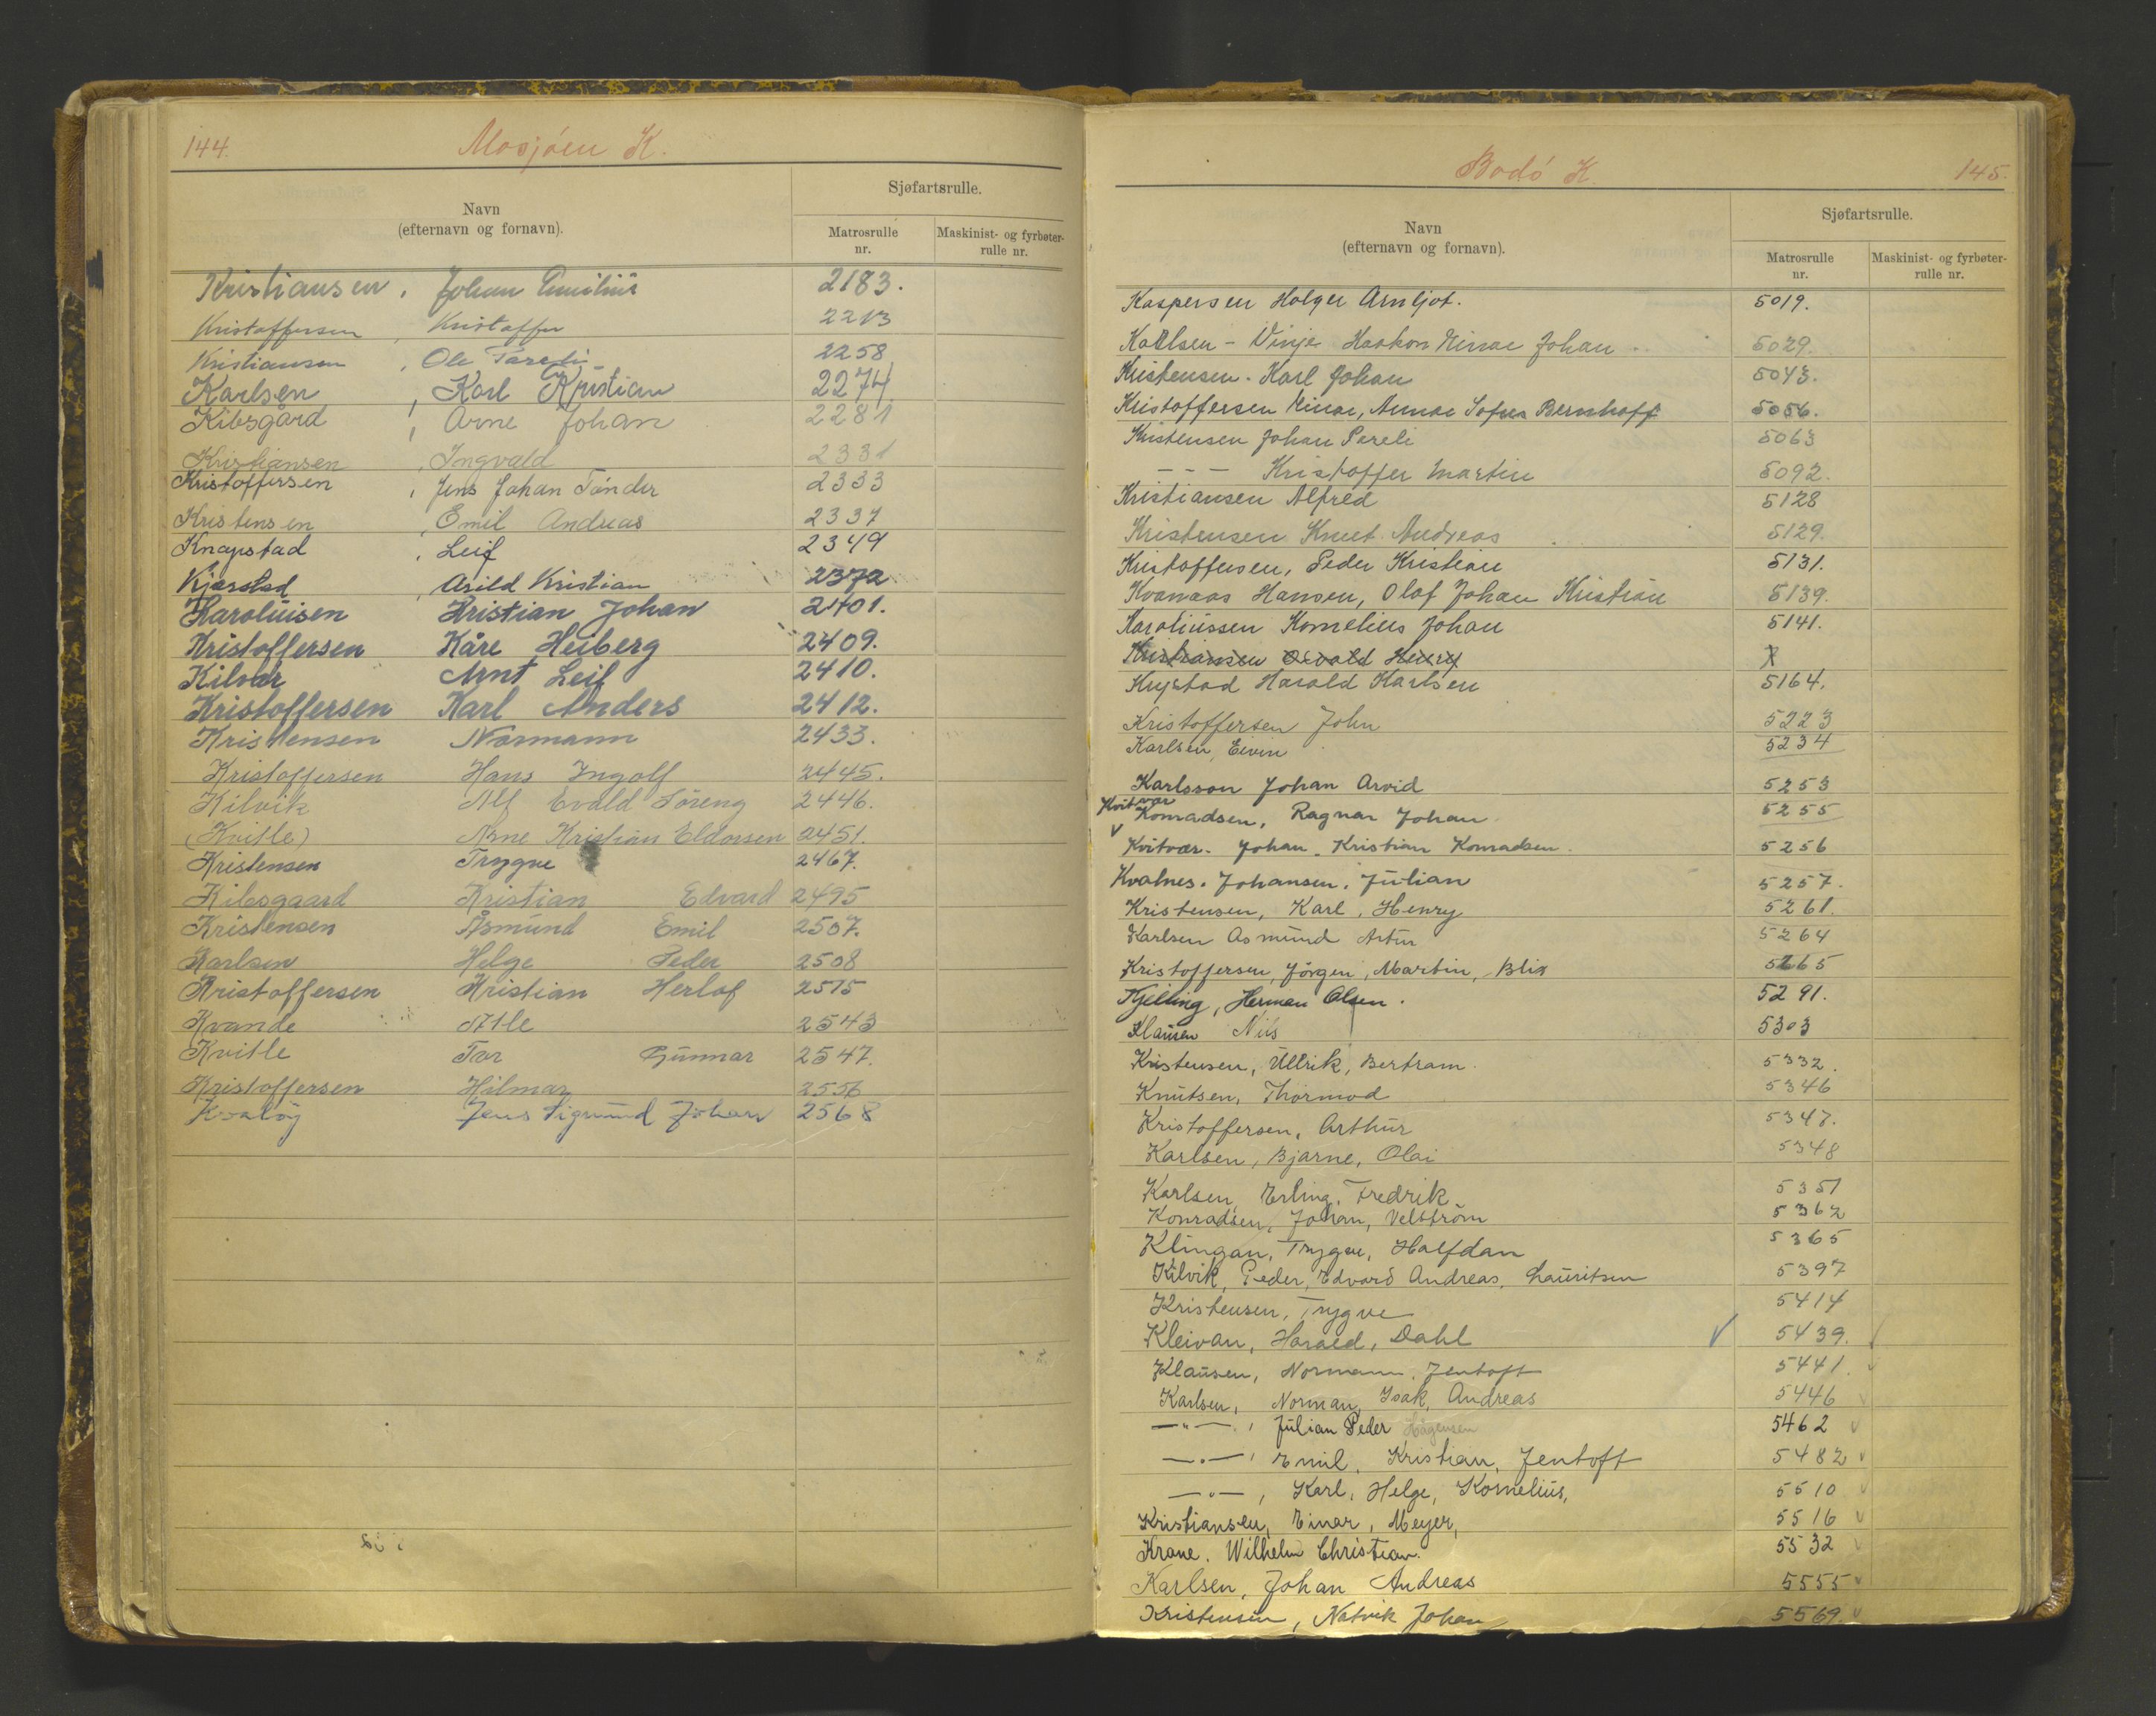 144.
Mosjøen K.
Sjøfartsrulle.
Navn
(efternavn og fornavn).
Matrosrulle
nr.
Maskinist- og fyrbøter-
rulle nr.
Kristiansen, Johan Emilius 2183.
Kristoffersen, Kristoffer 2213
Kristiansen, Ole 2258
Karlsen, Karl Kristian 2274
Kibsgård, Arne Johan 2281
Kristiansen, Ingvald 2331
Kristoffersen, Jens Johan Tønder 2333
Kristensen, Emil Andreas 2337
Knapstad, Leif 2349
Kjærstad, Arild Kristian 2372
Karoliusen Kristian Johan 2401.
Kristoffersen Kåre Heiberg 2409.
Kilvær Arnt Leif 2410.
Kristoffersen Karl Anders 2412.
Kristensen Normann 2433.
Kristoffersen Hans Ingolf 2445.
Kilvik Alf Evald Søreng 2446.
(Kvitle) Arne Kristian Eldorsen 2451.
Kristensen Trygve 2467.
Kibsgaard Kristian Edvard 2495
Kristensen Åsmund Emil 2507.
Karlsen Helge Peder 2508
Kristoffersen Kristian Herlof 2515
Kvande Atle 2543
Kvitle Tor Gunnar 2547.
Kristoffersen Hilmar 2556
Kvaløy Jens Sigmund Johan 2568
Bodø K.
145.
Sjøfartsrulle.
Navn
(efternavn og fornavn).
Matrosrulle
nr.
Maskinist- og fyrbøter-
rulle nr.
Kaspersen Holger Arnljot. 5019.
Karlsen - Vinje Haakon Einar Johan 5029.
Kristensen. Karl Johan 5043.
Kristoffersen Einar, Annar Sofus Bernhoff 5056.
Kristensen Johan Pereli 5063
— — — Kristoffer Martin 5092.
Kristiansen Alfred 5128
Kristensen Knut Andreas 5129.
Kristoffersen, Peder Kristian 5131.
Kvanaas Hansen, Olaf Johan Kristian 5139.
Karoliussen Kornelius Johan 5141.
Kristiansen Osvald Henry X
Krystad Harald Karlsen 5164.
Kristoffersen John 5223
Karlsen, Eivin 5234
Karlsson Johan Arvid 5253
Kvitvær
Konradsen, Ragnar Johan 5255
V Kvitvær. Johan. Kristian Konradsen. 5256
Kvalnes. Johansen. Julian 5257.
Kristensen, Karl, Henry 5261.
Karlsen Asmund Artur 5264
Kristoffersen, Jörgen, Martin, Blix 5265
Kjelling, Herman Olsen. 5291.
Klausen Nils 5303
Kristensen, Ullrik, Bertram. 5332.
Knutsen, Thormod 5346
Kristoffersen, Arthur 5347.
Karlsen, Bjarne, Olai 5348
Karlsen, Erling, Fredrik. 5351
Konradsen, Johan, Velström 5362
Klingan, Trygve, Halfdan 5365
Kilvik, Peder, Edvard Andreas, Lauritsen 5397
Kristensen, Trygve 5414
Kleivan, Harald, Dahl V 5439.
Klausen, Normann, Jentoft 5441.
Karlsen, Norman, Isak, Andreas 5446
— " —, Julian Peder Hågensen 5462
— " —, Emil, Kristian, Jentoft 5482
— " —, Karl, Helge, Kornelius, 5510
Kristiansen, Einar, Meyer, 5516
Krane. Wilhelm Christian. 5532
Karlsen, Johan Andreas 5555
Kristensen, Natvik Johan 5569.